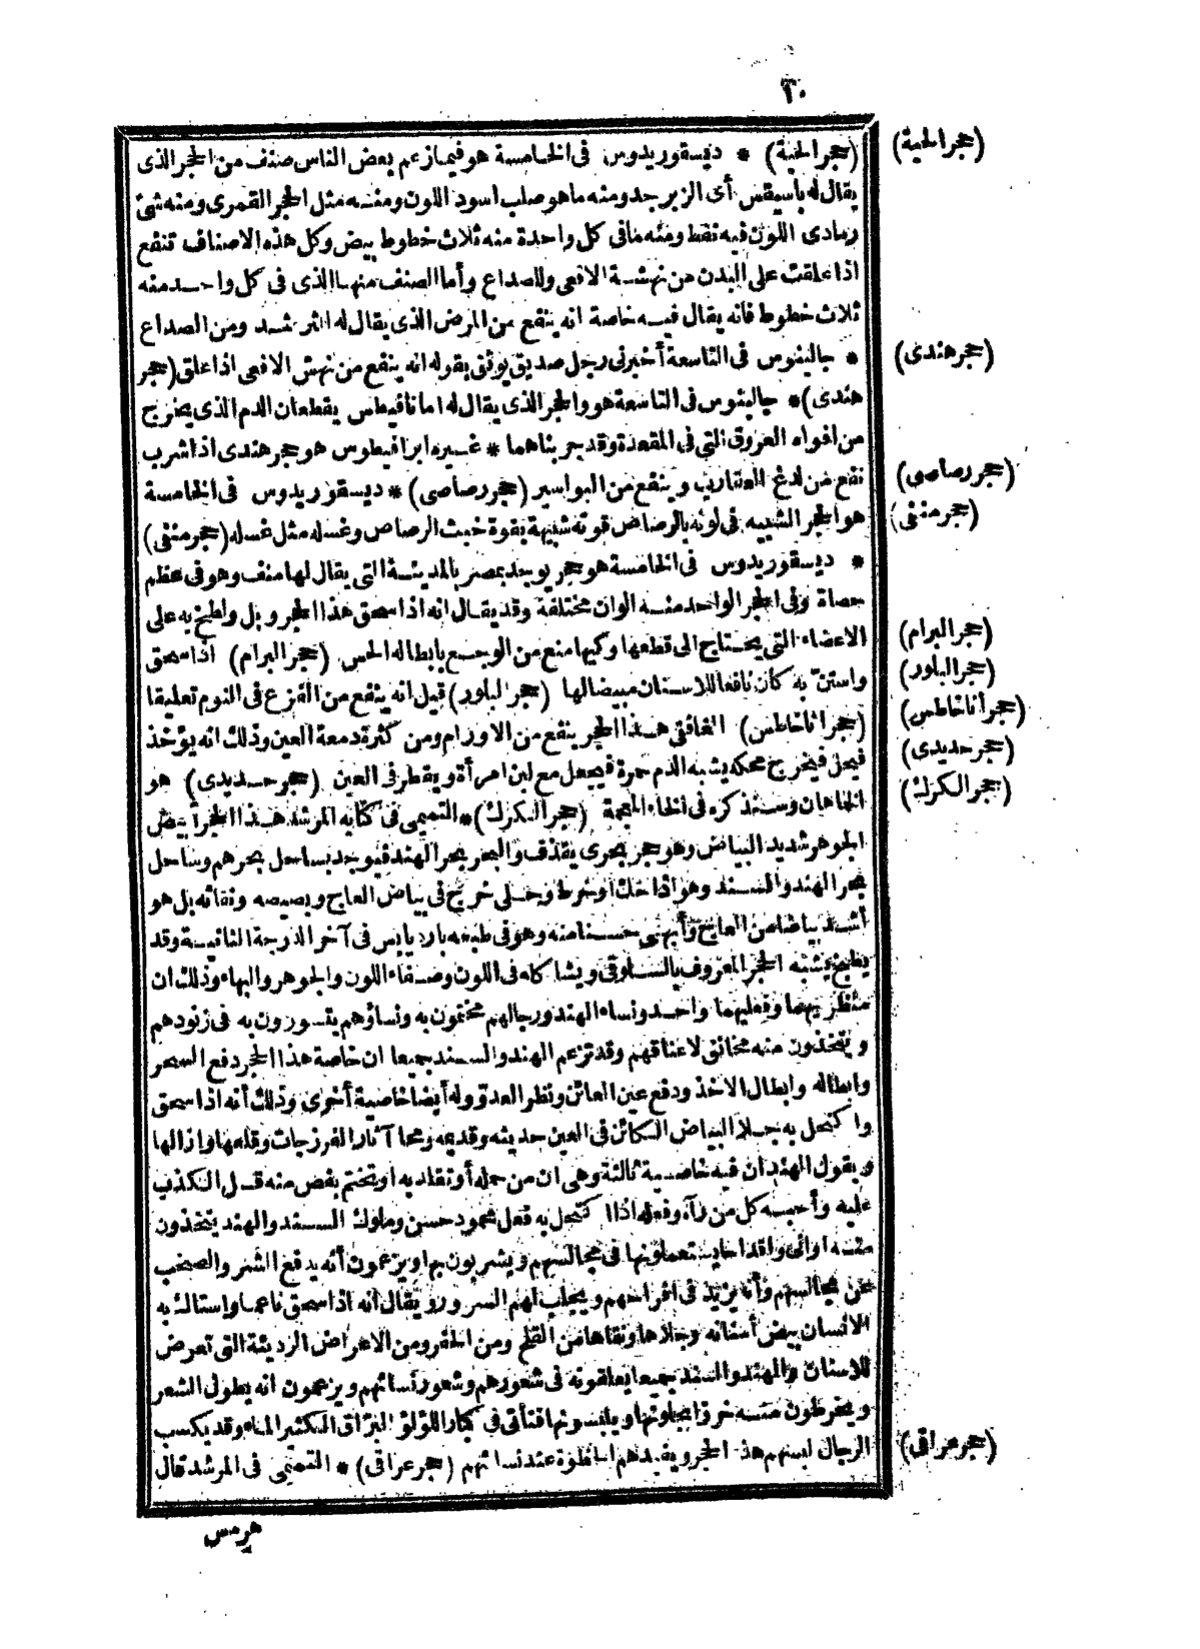 ١٠
(حجر الحية) * ديسقوريدوس فى الخامسة هو فيما زعم بعض الناس صنف من الحجر الذى
يقال له باسيقس أى الزبرجد ومنه ما هو صلب اسود اللون ومنه مثل الحجر القمرى ومنه شئ
رمادى اللون فيه نقط ومنه ما فى كل واحدة منه ثلاث خطوط بيض وكل هذه الاصناف تنفع
اذا علقت على البدن من نهشة الافعى والصداع وأما الصنف منها الذى فى كل واحد منه
ثلاث خطوط فانه يقال فيه خاصة انه ينفع من المرض الذى يقال له ومن الصداع
* جالينوس فى التاسعة أخبرنى رجل صديق يوثق بقوله انه ينفع من نهش الافعى اذا علق (حجر
هندى) * جالينوس فى التاسعة هو والحجر الذى يقال له اماناقيطس يقطعان الدم الذى يخرج
من افواه العروق التى فى المقعدة وقد جربناهما * غيره ابراقيطوس هو حجر هندى اذا شرب
نفع من لدغ العقارب وينفع من البواسير (حجر رصاصى) * ديسقوريدوس فى الخامسة
هو الحجر الشبيه فى لونه بالرصاص قوته شبيهة بقوة خبث الرصاص وغسله مثل غسله (حجر منفى)
* ديسقوريدوس فى الخامسة هو حجر يوجد بمصر بالمدينة التى يقال لها منف وهو فى عظم
حصاة وفى الحجر الواحد منه الوان مختلفة وقد يقال انه اذا سحق هذا الحجر وبل ولطخ به على
الاعضاء التى يحتاج الى قطعها وكيها منع من الوجع بابطاله الحس (حجر البرام) اذا سحق
واستن به كان نافعا للاسنان مبيضا لها (حجر البلور) قيل انه ينفع من الفزع فى النوم تعليقا
(حجر اناخاطس) الغافقى هذا الحجر ينفع من الاورام ومن كثرة دمعة العين وذلك انه يؤخذ
فيحك فيخرج محكه يشبه الدم حمرة فيجعل مع لبن امرأة ويقطر فى العين (حجر حديدى) هو
الخاهان وسنذكره فى الخاء المعجمة (حجر الكرك) * التميمى فى كتابه المرشد هذا الحجر أبيض
الجوهر شديد البياض وهو حجر بحرى يقذف والبحر بحر الهند فيوجد بساحل بحرهم وساحل
بحر الهند والسند وهو اذا حك أو خرط وجلى خرج فى بياض العاج وبصيصه ونقائه بل هو
أشد بياضا من العاج وأبهى حسنا منه وهو فى طبعه بارد يابس فى آخر الدرجة الثانية وقد
يشبه الحجر المعروف بالسلوقى ويشاكله فى اللون وصفاء اللون والجوهر والبهاء وذلك ان
منظريهما وفعليهما واحد ونساء الهند ورجالهم مختمون به ونساؤهم يتسورون به فى زنودهم
ويتخذون منه مخانق لاعناقهم وقد تزعم الهند والسند جميعا ان خاصة هذا الحجر دفع السحر
وابطاله وابطال الاخذ ودفع عين العائن ونظر العدو وله أيضا خاصية أخرى وذلك أنه اذا سحق
واكتحل به جلا البياض الكائن فى العين حديثه وقديمه ومحا آثار القرزجات وقلعها وازالها
ويقول الهند ان فيه خاصية ثالثة وهى ان من حمله أو تقلد به او تختم بفص منه قل الكذب
عليه وأحبه كل من رآه وفعله اذا اكتحل به فعل محمود حسن وملوك السند والهند يتخذون
منه اوانى واقداحا يستعملونها فى مجالسهم ويشربون بها ويزعمون أنه يدفع الشر والصخب
عن مجالسهم وأنه يزيد فى افراحهم ويجلب لهم السرور ويقال انه اذا سحق ناعما واستاك به
الانسان بيض أسنانه وجلاها ونقاها من القلح ومن الحفر ومن الاعراض الرديئة التى تعرض
للاسنان والهند والسند جميعا يعلقونه فى شعورهم وشعور نسائهم ويزعمون انه يطول الشعر
ويخرطون منه خرزا يجلونها ويلبسونها فتأتى فى كبار اللؤلؤ البراق الكثير الماء وقد يكسب
الرجال لبسهم هذا الحجر ويفيدهم الحظوة عند نسائهم (حجر عراقى) * التميمى فى المرشد قال
هرمس
(حجر الحية)
(حجر هندى)
(حجر رصاصى)
(حجر منفى)
(حجر البرام)
(حجر البلور)
(حجر أناخاطس)
(حجر حديدى)
(حجر الكرك)
(حجر عراقى)